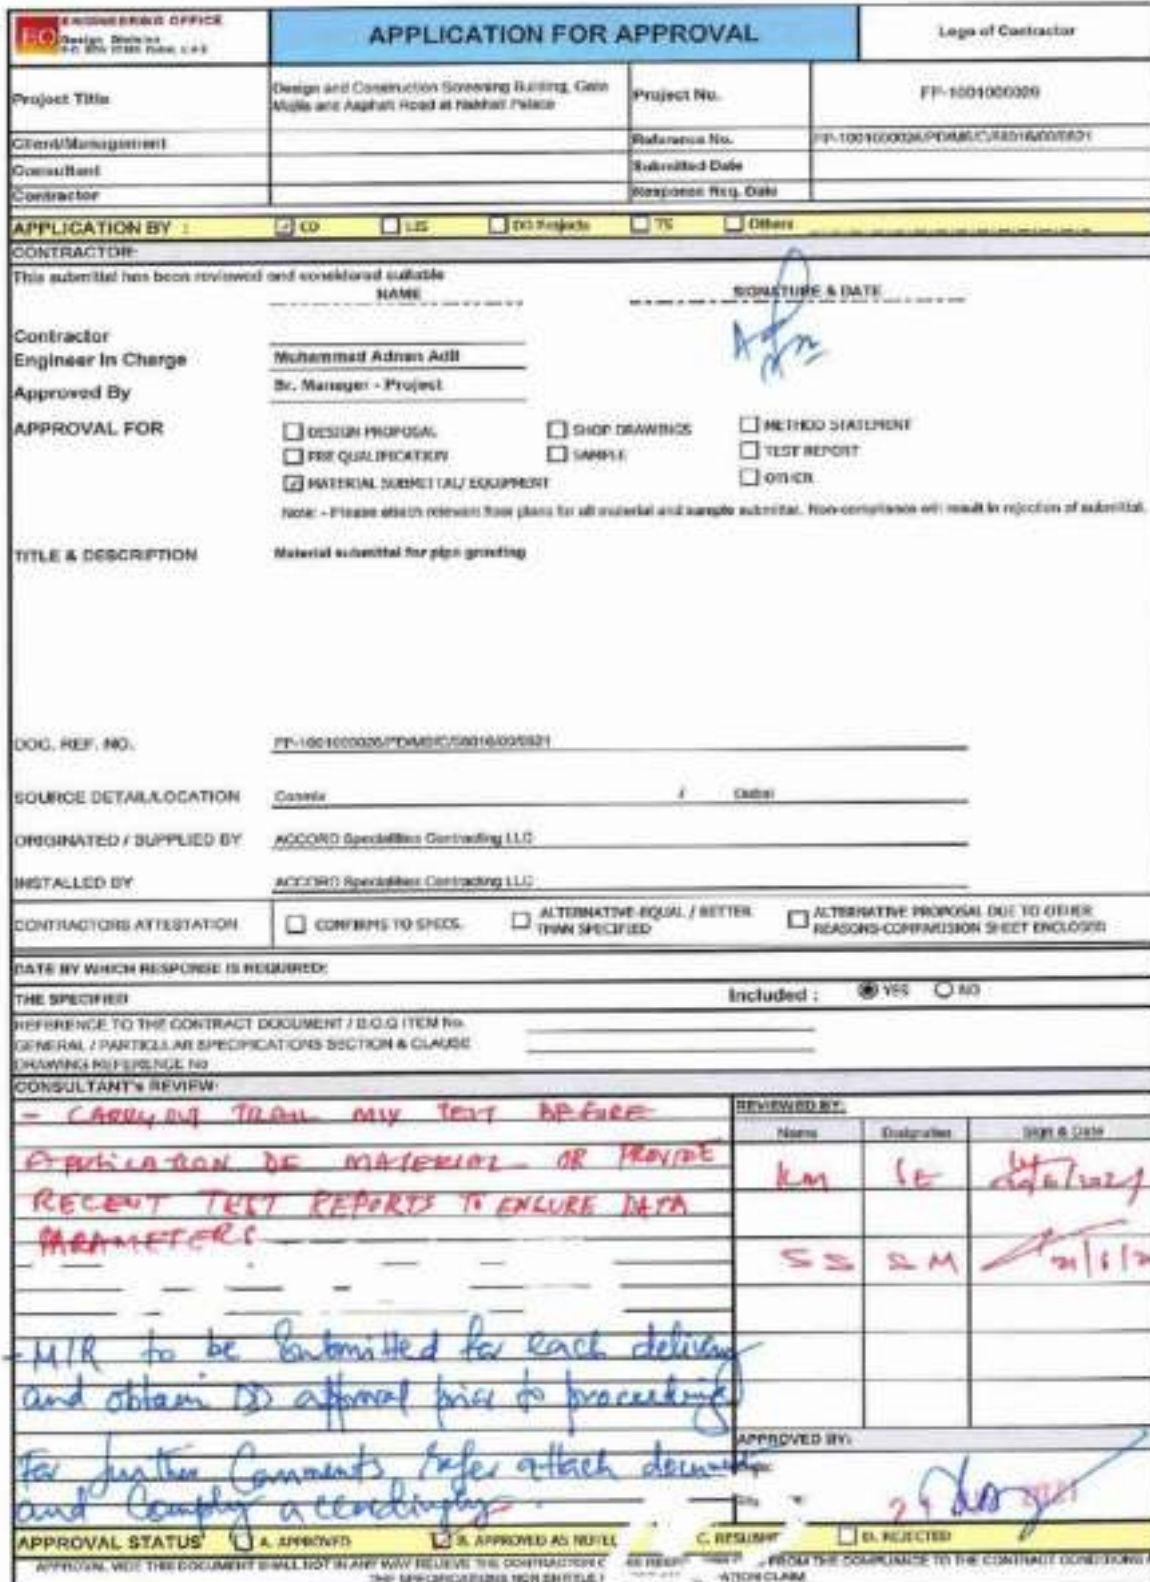 EO ENGINEERING OFFICE
Design Division
APPLICATION FOR APPROVAL
Logo of Contractor
Project Title
Design and Construction Screening Building, Gate
Majlis and Asphalt Road at Nakhali Palace
Project No.
FP-1001000026
Client/Management
Reference No.
FP-1001000026/PD/MS/C/58016/00/0821
Consultant
Submitted Date
Contractor
Response Req. Date
APPLICATION BY :
CO
LIS
DO Projects
TS
Others
CONTRACTOR:
This submittal has been reviewed and considered suitable
NAME
SIGNATURE & DATE
Contractor
Engineer In Charge
Muhammad Adnan Adil
Approved By
Sr. Manager - Project
APPROVAL FOR
DESIGN PROPOSAL
SHOP DRAWINGS
METHOD STATEMENT
PRE QUALIFICATION
SAMPLE
TEST REPORT
MATERIAL SUBMITTAL/ EQUIPMENT
OTHER
Note: - Please attach relevant floor plans for all material and sample submittal. Non-compliance will result in rejection of submittal.
TITLE & DESCRIPTION
Material submittal for pipe grouting
DOC. REF. NO.
FP-1001000026/PD/MS/C/58016/00/0821
SOURCE DETAIL/LOCATION
Conmix / Dubai
ORIGINATED / SUPPLIED BY
ACCORD Specialities Contracting LLC
INSTALLED BY
ACCORD Specialities Contracting LLC
CONTRACTORS ATTESTATION
CONFIRMS TO SPECS.
ALTERNATIVE-EQUAL / BETTER
THAN SPECIFIED
ALTERNATIVE PROPOSAL DUE TO OTHER
REASONS-COMPARISION SHEET ENCLOSED
DATE BY WHICH RESPONSE IS REQUIRED:
THE SPECIFIED
Included : YES NO
REFERENCE TO THE CONTRACT DOCUMENT / B.O.Q ITEM No.
GENERAL / PARTICULAR SPECIFICATIONS SECTION & CLAUSE
DRAWING REFERENCE No
CONSULTANT's REVIEW:
- CARRY OUT TRAIL MIX TEST BEFORE
APPLICATION OF MATERIAL OR PROVIDE
RECENT TEST REPORTS TO ENSURE DATA
PARAMETERS
- MIR to be Submitted for each delivery
and obtain DD approval prior to proceeding
For further Comments refer attach document
and Comply accordingly.
REVIEWED BY:
Name
Designation
Sign & Date
KM
SE
SS
SM
APPROVED BY:
APPROVAL STATUS
A. APPROVED
B. APPROVED AS NOTED
C. RESUBMIT
D. REJECTED
APPROVAL WIDE THIS DOCUMENT SHALL NOT IN ANY WAY RELIEVE THE CONTRACTOR FROM THE COMPLIANCE TO THE CONTRACT CONDITIONS
THE SPECIFICATIONS NOR ENTITLE